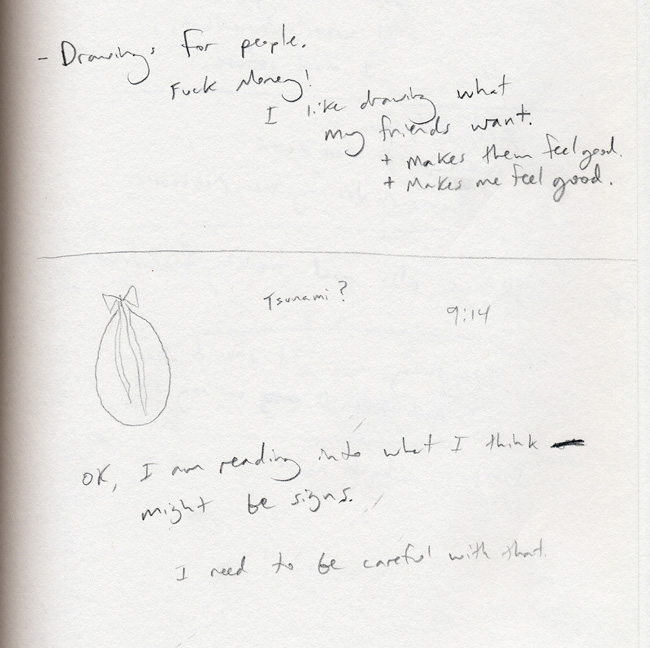 - Drawings for people.
Fuck Money!
I like drawing what
my friends want.
+ makes them feel good.
+ Makes me feel good.
Tsunami?
9:14
OK, I am reading into what I think
might be signs.
I need to be careful with that.